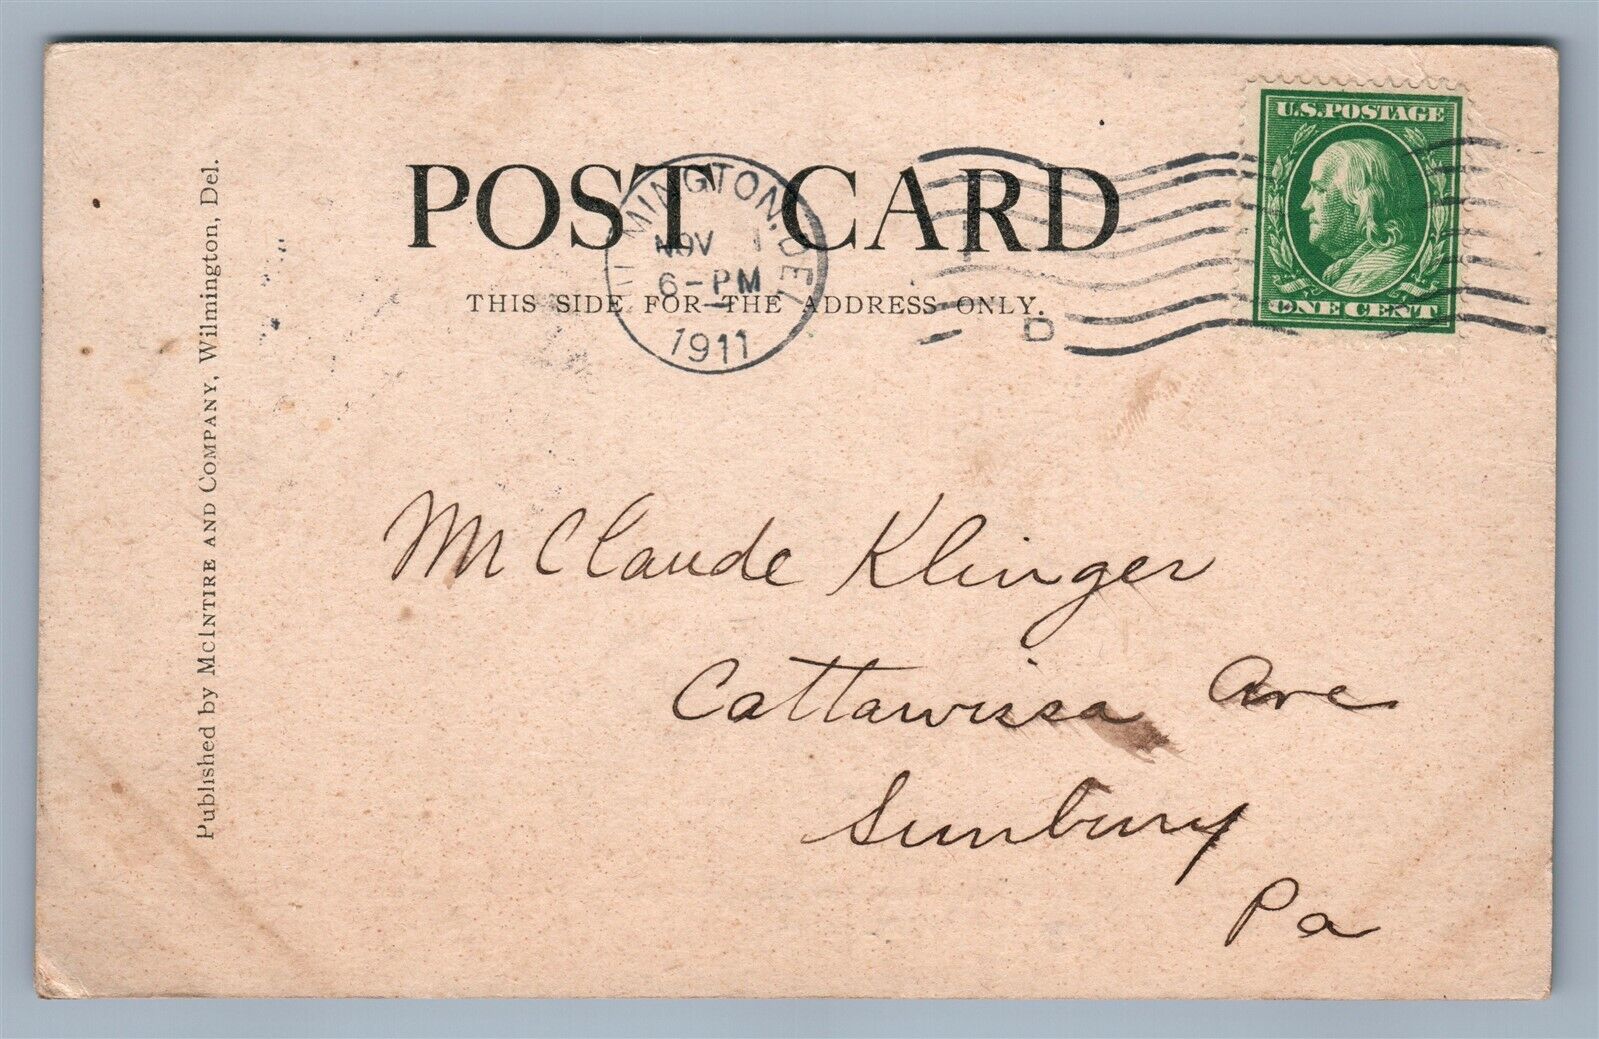 POST CARD
THIS SIDE FOR THE ADDRESS ONLY.
WILMINGTON, DEL.
NOV 1
6-PM
1911
D
U.S. POSTAGE
ONE CENT
Mr Claude Klinger
Cattawissa Ave
Sunbury
Pa
Published by McINTIRE AND COMPANY, Wilmington, Del.